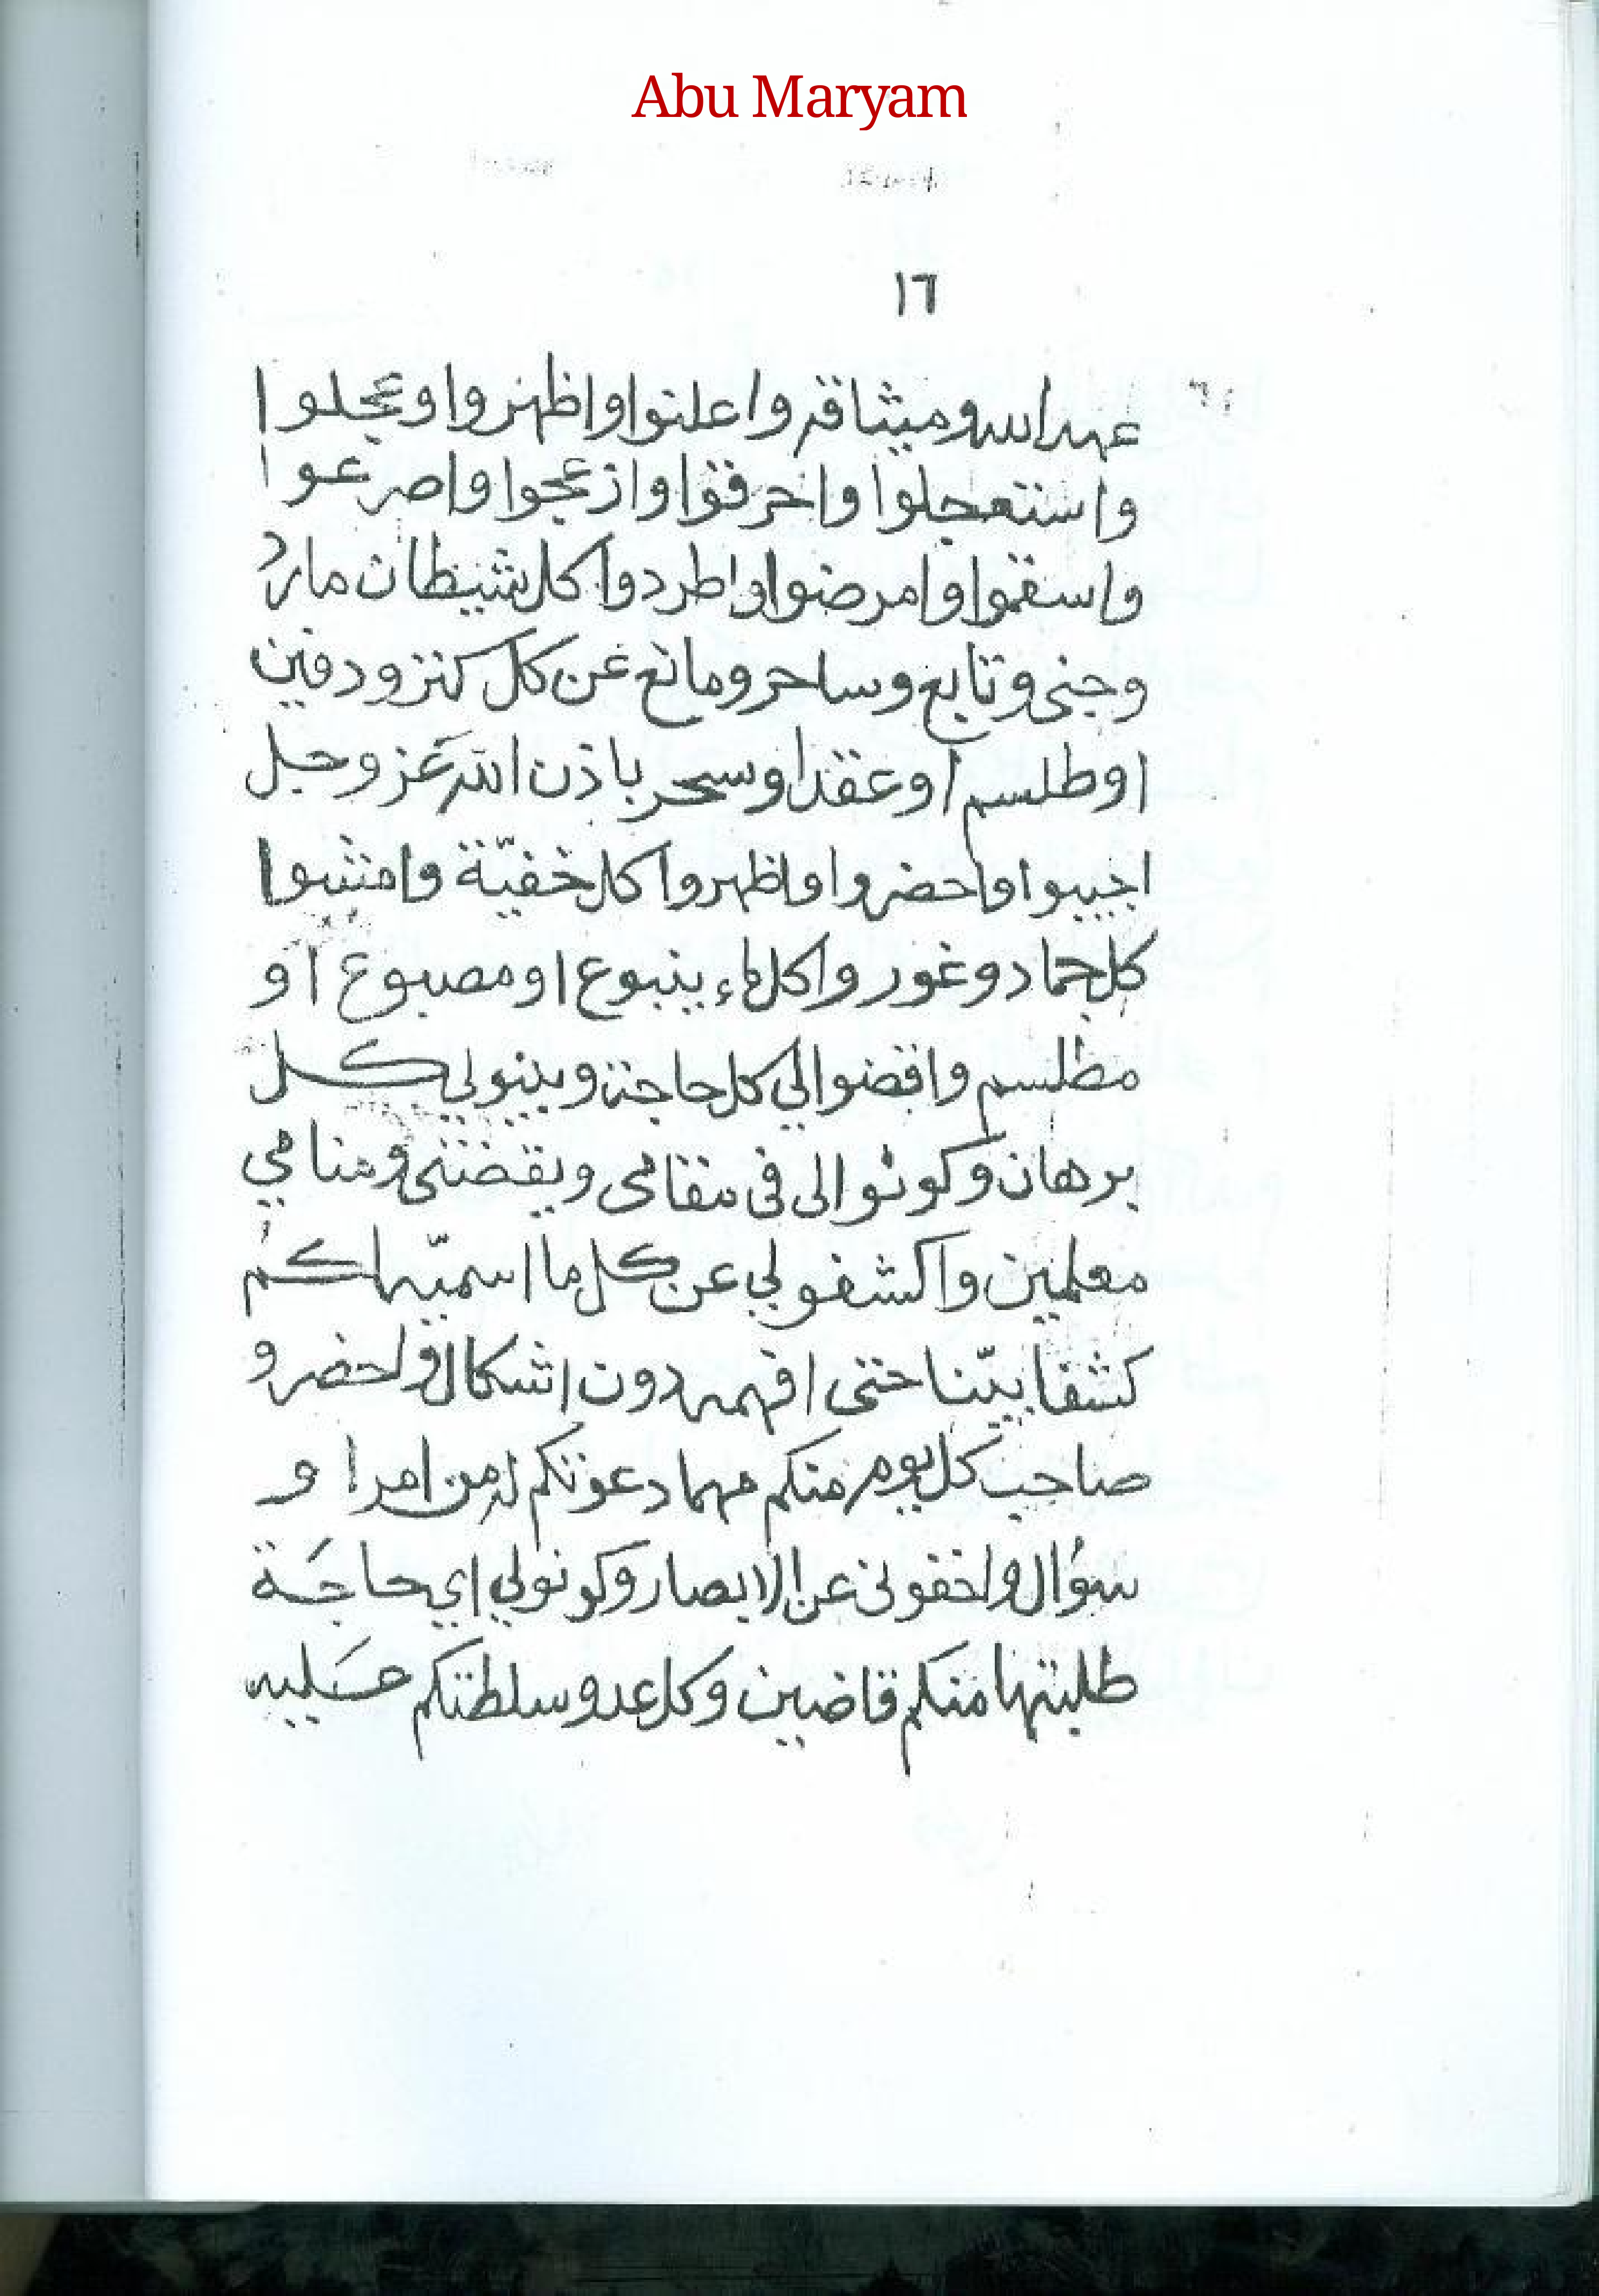 Abu Maryam
١٦
عهد الله وميثاقه واعلنوا واظهروا وعجلوا
واستعجلوا واحرقوا وازعجوا واصرعوا
واسقموا وامرضوا واطردوا كل شيطان مارد
وجنى وتابع وساحر ومانع عن كل كنز ودفين
او طلسم او عقد او سحر باذن الله عز وجل
اجيبوا واحضروا واظهروا كل خفيّة وامشوا
كل جماد وغوروا كل ماء ينبوع او مصبوع او
مطلسم واقضوالي كل حاجة وبينولي كل
برهان وكونوالى فى مقامى ويقضتى ومنامي
معلمين واكشفولي عن كل ما اسميه لكم
كشفا بيّنا حتى افهمه دون اشكال ولحضرو
صاحب كل يوم منكم مهما دعوتكم له من امر او
سؤال ولخفونى عن الابصار وكونولي اي حاجَة
طلبتها منكم قاضين وكل عدو سلطتكم عَليه